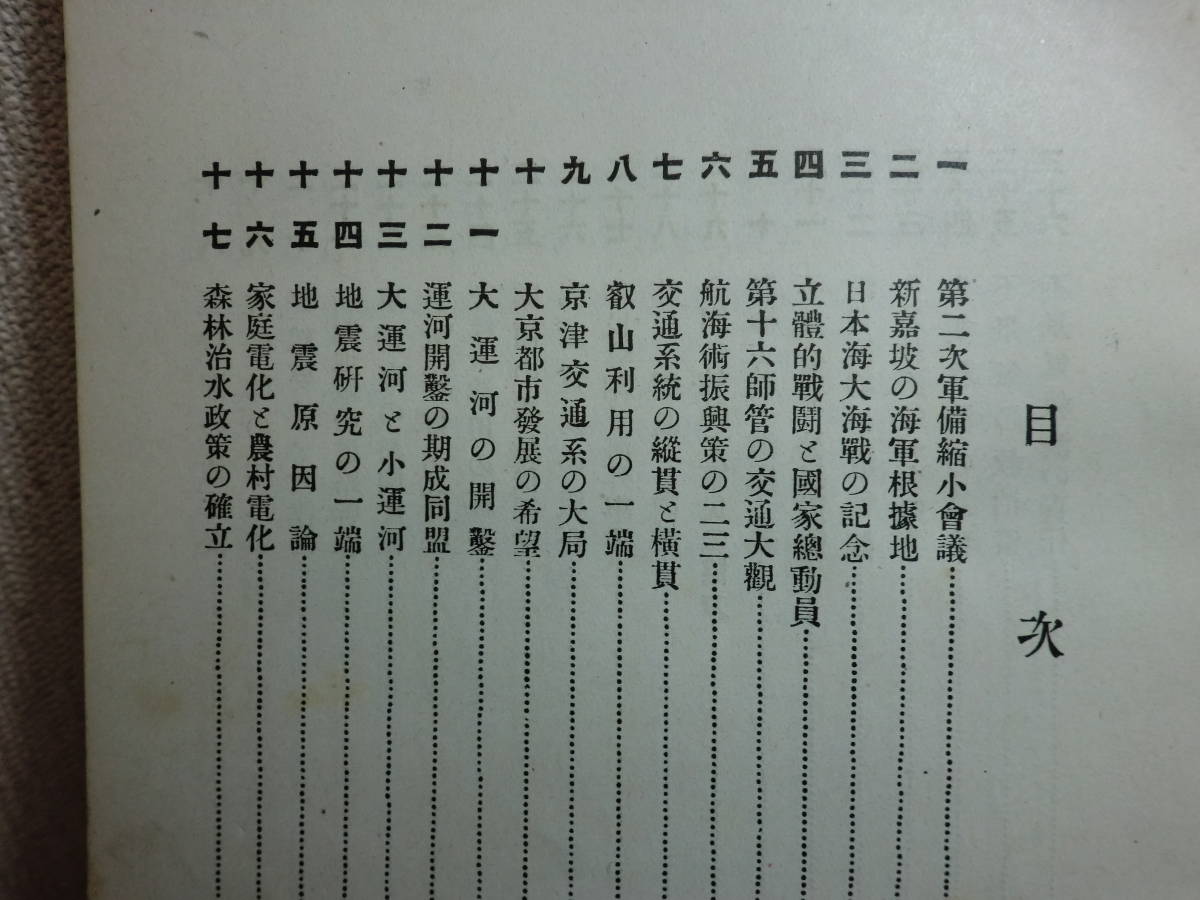 目次
一 第二次軍備縮小會議
二 新嘉坡の海軍根據地
三 日本海大海戰の記念
四 立體的戰鬪と國家總動員
五 第十六師管の交通大觀
六 航海術振興策の二三
七 交通系統の縱貫と橫貫
八 叡山利用の一端
九 京津交通系の大局
十 大京都市發展の希望
十一 大運河の開鑿
十二 運河開鑿の期成同盟
十三 大運河と小運河
十四 地震硏究の一端
十五 地震原因論
十六 家庭電化と農村電化
十七 森林治水政策の確立